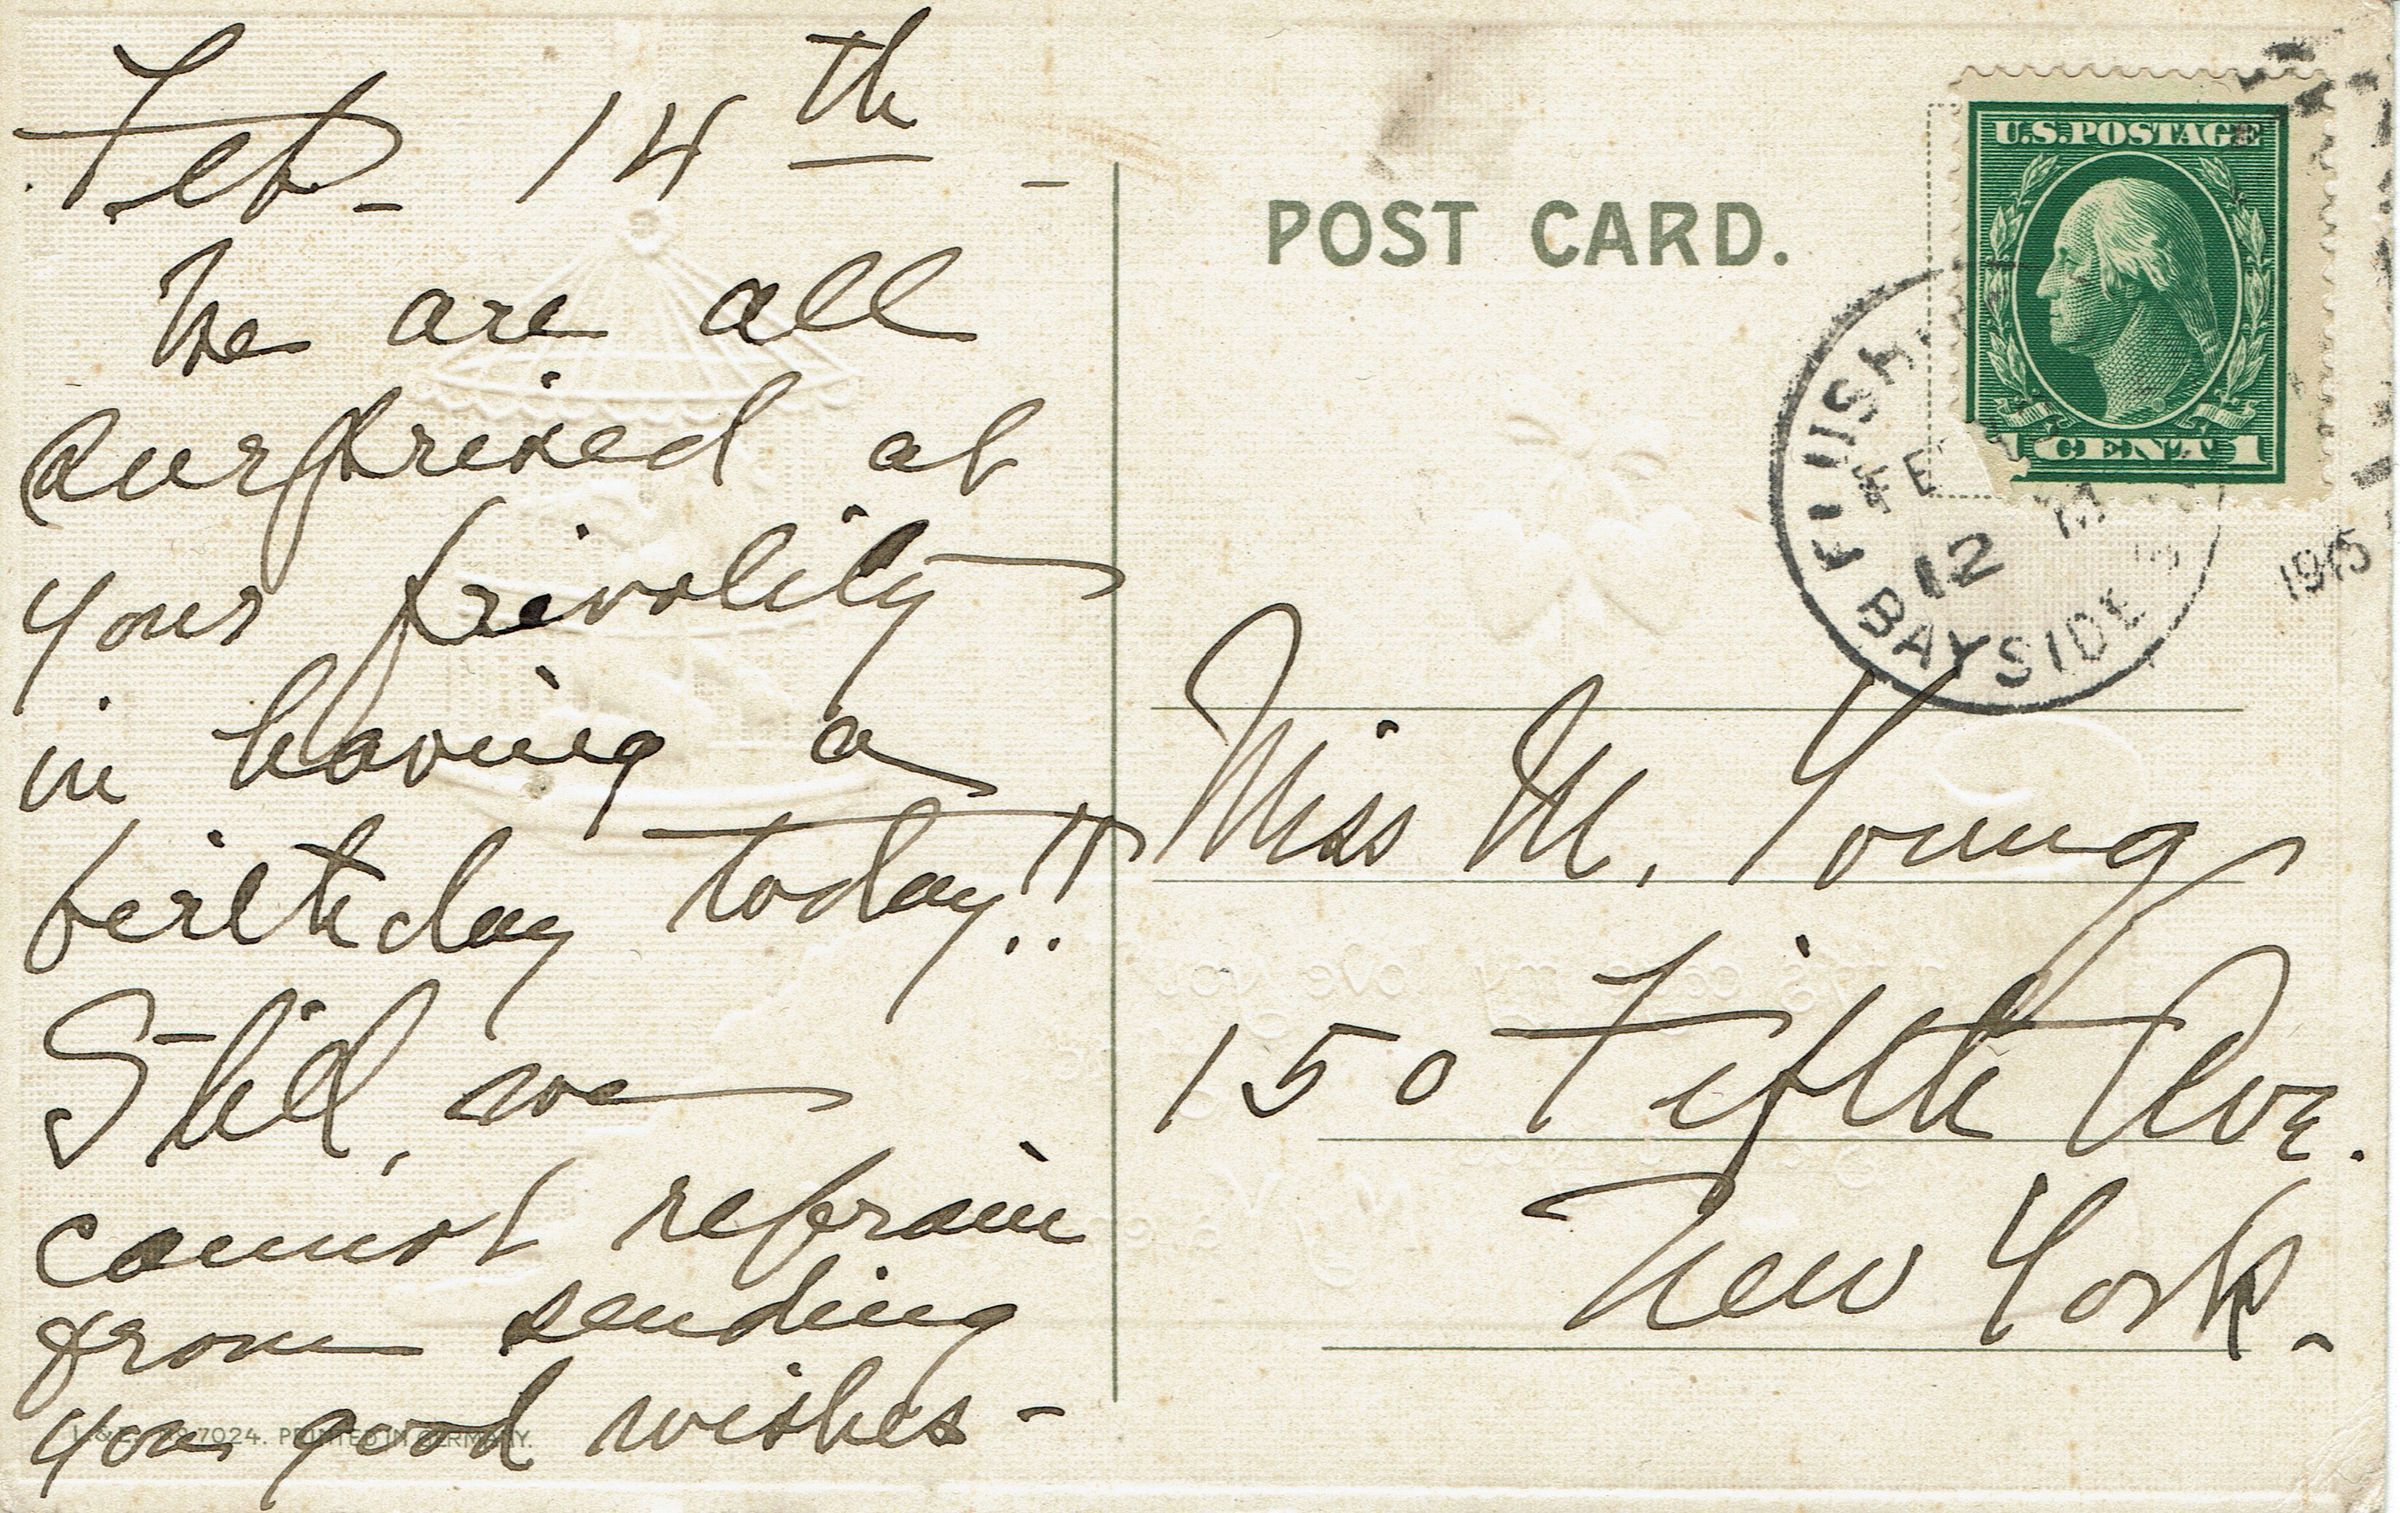 Feb - 14th -
We are all
surprised at
your frivolity
in having a
birthday today!!
Still, we
cannot refrain
from sending
you good wishes -
7024. PRINTED IN GERMANY.
POST CARD.
U.S. POSTAGE
1 CENT 1
FLUSH
FE
12 M
BAYSIDE
1915
Miss M. Young
150 Fifth Ave.
New York -